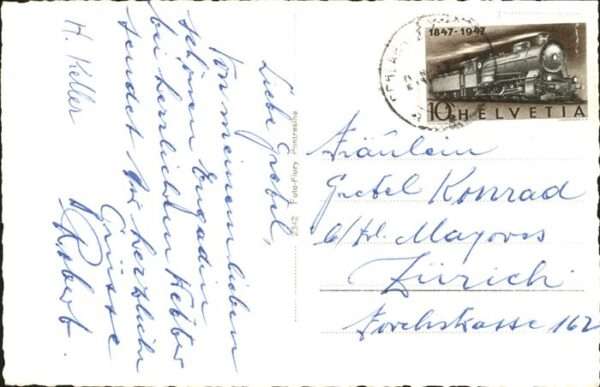 Liebe Gretel,
Von meinem lieben
schönen Engadin
bei herrlichem Wetter
sendet Dir herzliche
Grüsse
Robert.
H. Keller
2342 Foto-Flury Pontresina
1847-1947
10 HELVETIA
Fräulein
Gretel Konrad
b/Hr. Mayoross
Zürich
Forchstrasse 162